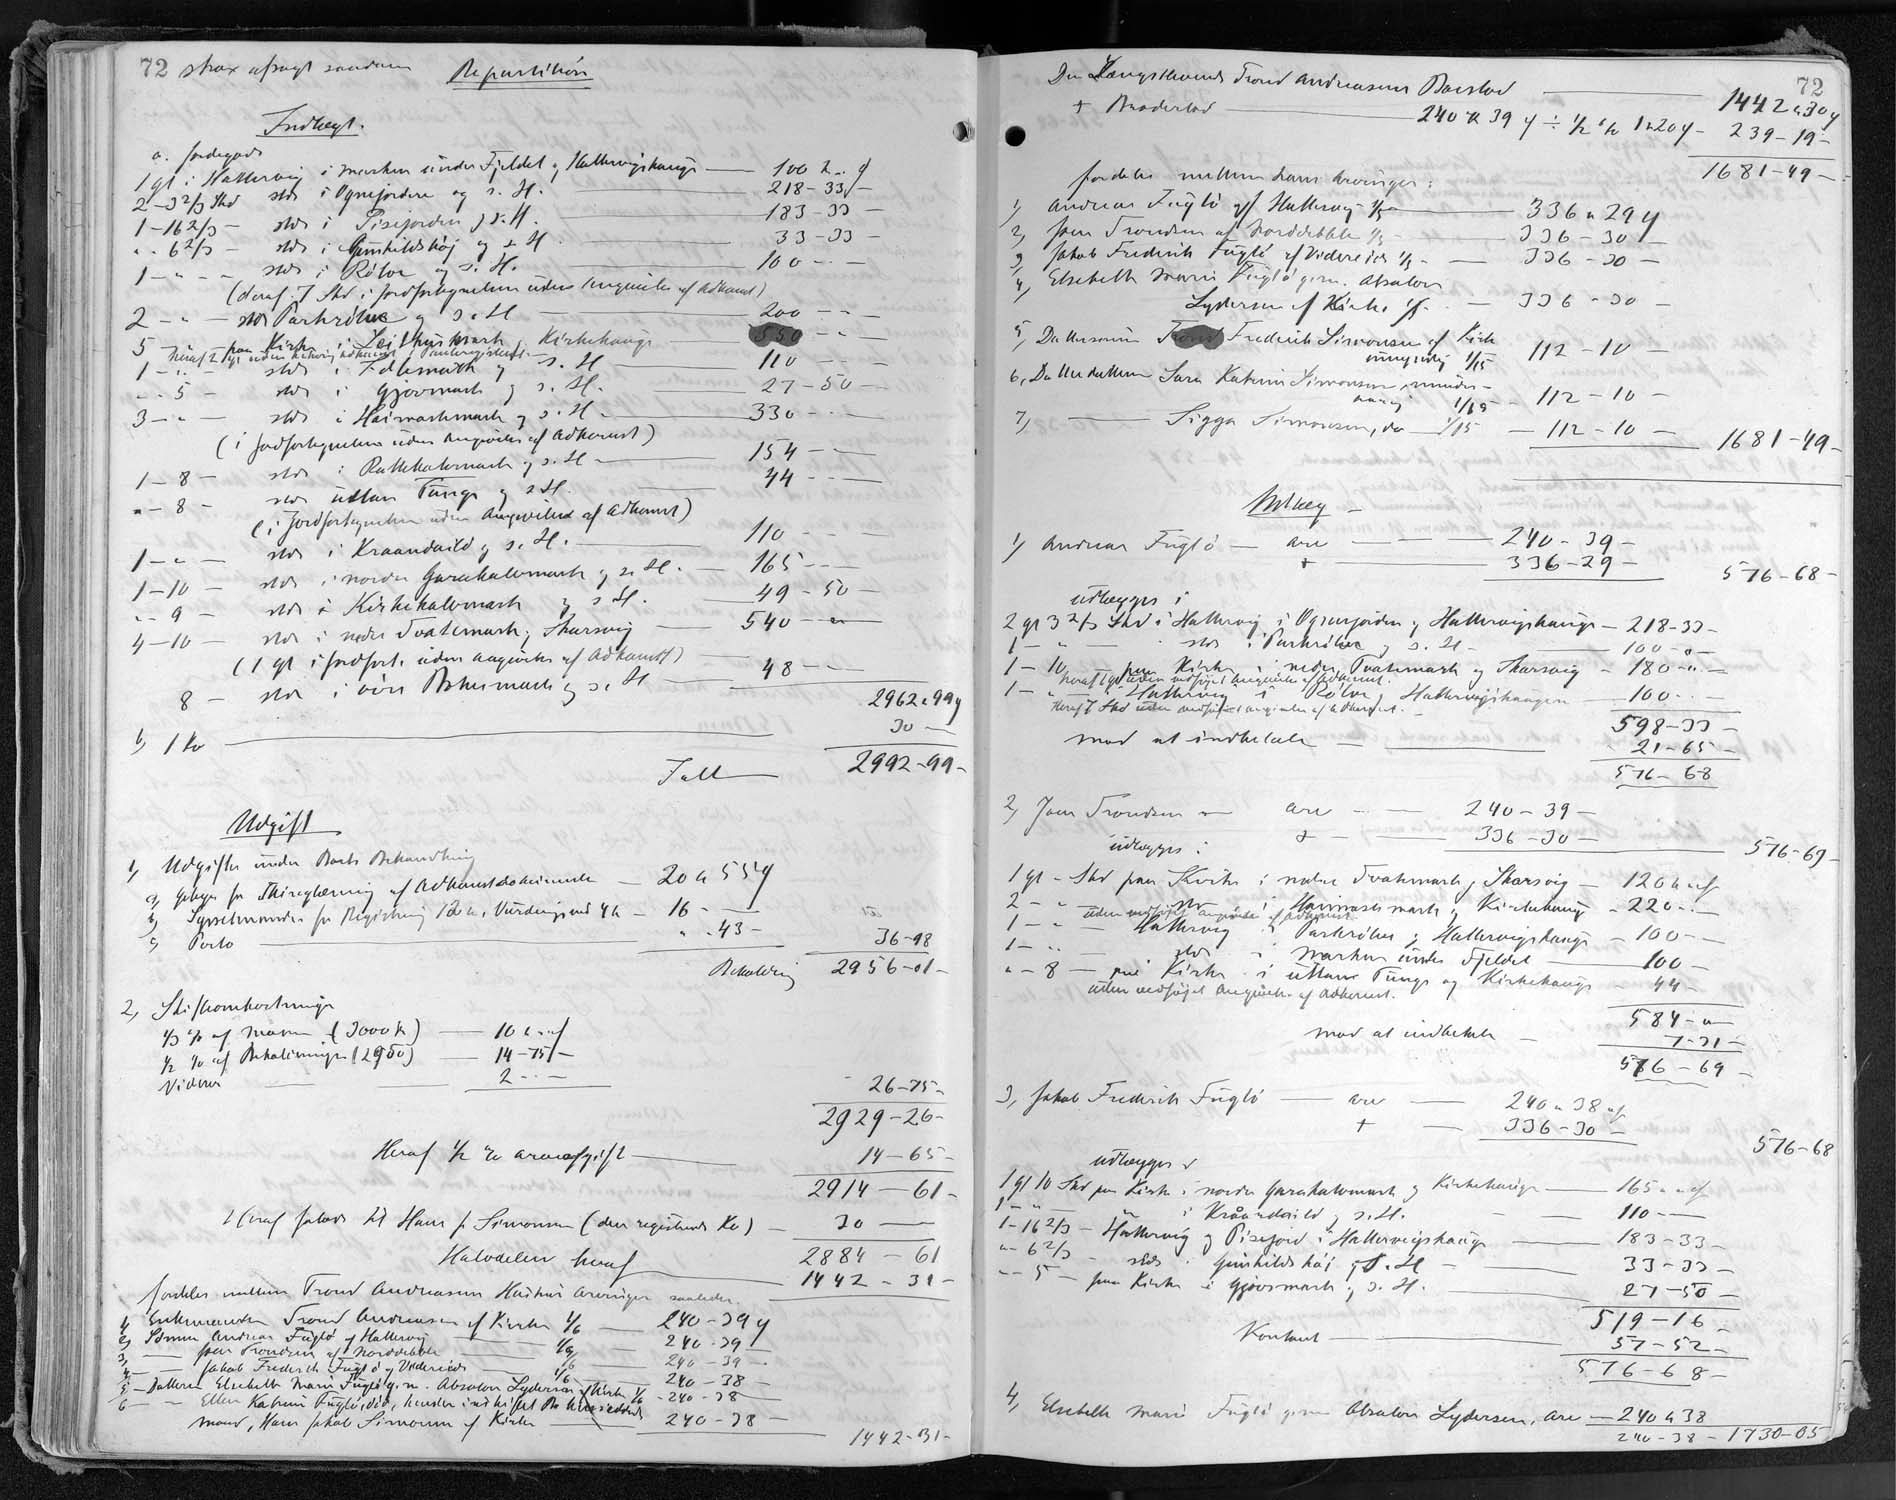 72 strax afsagt saadan Repartition
Indtægt.
a. Jordegods
1 gl i Hattervig i marken under Fjeldet og Hattervigshauge — 100 k " ø
2 - 3 2/3 Skd stds i Ognefjorden og s. H. 218 - 33 -
1 - 16 2/3 - stds i Pisifjorden og s. H. 183 - 33 -
" - 6 2/3 - stds i Gunhildshøj og s. H. 33 - 33 -
1 - " - stds i Rólve og s. H. 100 - " -
(deraf 7 Skd i Jordfortegnelsen uden Angivelse af Adkomst)
2 - " - stds Parkrólve og s. H. 200 - " -
5 paa Kirke i Leithusmark, Kirkehauge 550 - " -
heraf 2 gl uden behørig Adkomst i Panteregistret
1 - " - stds i Fellsmark og s. H. 110 - " -
" - 5 - stds i Gjovmark og s. H. 27 - 50 -
3 - " - stds i Heimastmark og s. H. 330 - " -
(i Jordfortegnelsen uden Angivelse af Adkomst)
1 - 8 - stds i Rattehalvmark og s. H. 154 - " -
" - 8 - stds uttan Tunge og s. H. 44 - " -
(i Jordfortegnelsen uden Angivelse af Adkomst)
1 - " - stds i Kraandaild og s. H. 110 - " -
1 - 10 - stds i nordre Garahalvmark og s. H. 165 - " -
" - 9 - stds i Kirkehalvmark og s. H. 49 - 50 -
4 - 10 - stds i nedre Tvatemark, Skarsvig 540 - " -
(1 gl i Jordfort. uden Angivelse af Adkomst)
8 - stds i óvre Bakismark og s. H. 48 - " -
2962 " 99 ø
b, 1 Ko 30 -
Talt 2992 - 99 -
Udgift
1, Udgifter under Boets Behandling
a, Gebyr for Thinglæsning af Adkomstdokumenter — 20 k 55 ø
b, Sysselmanden for Registrering 12 k, Vurderingsmd 4 k — 16 -
c, Porto " - 43 - 36 - 98
Beholdning 2956 - 01 -
2, Skifteomkostninger
1/3 % af Massen (3000 k) — 10 k " ø
1/2 % af Beholdningen (2950) — 14 - 75 -
Vidner 2 - " -
26 - 75 -
2929 - 26 -
Heraf 1/2 % Arveafgift 14 - 65 -
2914 - 61 -
Heraf falder til Hans J. Simonsen (den registrerede Ko) — 30 -
2884 - 61
Halvdelen heraf 1442 - 31 -
fordeles mellem Trond Andreasens Hustrus Arvinger saaledes
1, Enkemanden Trond Andreasen af Kirke 1/6 — 240 - 39 ø
2, Sönnen Andreas Fugló af Hattervig 1/6 240 - 39
3, — Joen Trondsen af Norddeble 1/6 240 - 39 -
4, — Jakob Frederik Fugló af Viderejde 1/6 240 - 38 -
5 - Datteren Elsebeth Marie Fugló g. m. Absalon Lydersen af Kirke 1/6 240 - 38
6 — Ellen Katrine Fugló, död, hendes
Mand, Hans Jakob Simonsen af Kirke 240 - 38 -
1442 - 31 -
72
Den Længstlevende Trond Andreasens Boeslod 1442 " 30 ø
+ Broderlod 240 k 39 ø ÷ 1/2 % 1 k 20 ø - 239 - 19 -
1681 - 49 -
fordeles mellem hans Arvinger:
1, Andreas Fugló af Hattervig 1/5 336 " 29 ø
2, Joen Trondsen af Norddeble 1/5 - 336 - 30
3, Jakob Frederik Fugló af Viderejde 1/5 336 - 30 -
4, Elsebeth Marie Fugló g.m. Absalon
Lydersen af Kirke 1/5 336 - 30 -
5, Dattersönnen Frederik Simonsen af Kirke
umyndig 1/15 112 - 10 -
6, Datterdatteren Sara Katrine Simonsen, mindre-
aarig 1/15 - 112 - 10 -
7, — Sigga Simonsen, do 1/15 — 112 - 10 - 1681 - 49 -
Udlæg
1, Andreas Fugló — Arv — 240 - 39 -
+ 336 - 29 - 576 - 68 -
udlægges i
2 gl 3 2/3 Skd i Hattervig i Ognarfjorden og Hattervigshauge — 218 - 33 -
1 - " - stds i Parkrólve og s. H. - 100 - " -
1 - 10 - paa Kirke i nedre Tvatemark og Skarsvig — 180 - " -
heraf 1 gl uden vedføjet Angivelse af Adkomst.
1 - " - i Hattervig i Rólve og Hattervigshaugen — 100 - " -
Heraf 7 Skd uden vedføjet Angivelse af Adkomst.
598 - 33 -
mod at indbetale 21 - 65 -
576 - 68
2, Joen Trondsen Arv — 240 - 39 -
+ 336 - 30 - 576 - 69 -
udlægges:
1 gl - Skd paa Kirke i nedre Tvatemark og Skarsvig — 120 k " ø
2 - " - stds i Heimastmark og Kirkehauge — 220 - " -
uden vedføjet Angivelse af Adkomst
1 - " - Hattervig i Parkrólve og Hattervigshauge — 100 - " -
1 - " - stds i Marken under Fjeldet 100 -
" - 8 - paa Kirke i uttan Tunge og Kirkehauge — 44 -
uden vedföjet Angivelse af Adkomst.
584 - " -
mod at indbetale — 7 - 31 -
576 - 69 -
3, Jakob Frederik Fugló — Arv — 240 " 38 ø
+ — 336 - 30 - 576 - 68
udlægges i
1 gl 10 Skd paa Kirke i nordre Garahalvmark og Kirkehauge — 165 " " ø
1 - " - i Kraandaild og s. H. 110 - " -
1 - 16 2/3 - Hattervig og Pisefjord i Hattervigshauge — 183 - 33 -
" - 6 2/3 - stds Gunhildshój og s. H. 33 - 33 -
" - 5 - paa Kirke i Gjovsmark og s. H. 27 - 50 -
519 - 16 -
Kontant 57 - 52 -
576 - 68 -
4, Elsebeth Marie Fugló g.m. Absalon Lydersen, Arv — 240 k 38
240 - 38 - 1730 - 05